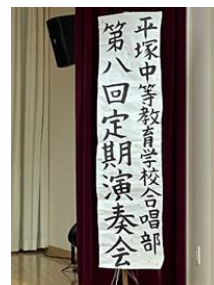 平塚中等教育学校合唱部
第八回定期演奏会